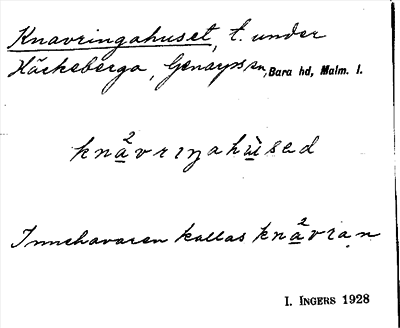 Knavringahuset, t. under
Häckeberga, Genarps sn, Bara hd, Malm. l.
kna̲²vrıŋahù̲sed
Innehavaren kallas kna̲²vrıan
I. INGERS 1928